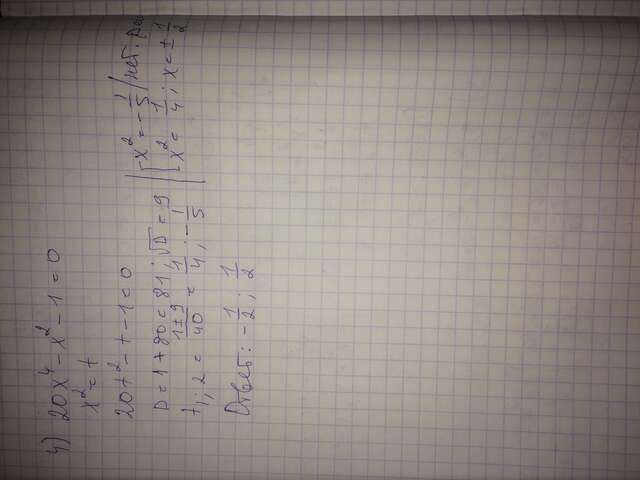 4) 20x⁴ - x² - 1 = 0
x² = t
20t² - t - 1 = 0
D = 1 + 80 = 81 ; √D = 9
t₁;₂ = (1 ± 9)/40 = 1/4 ; -1/5
x² = -1/5 / нет.
x² = 1/4 ; x = ± 1/2
Ответ: -1/2 ; 1/2